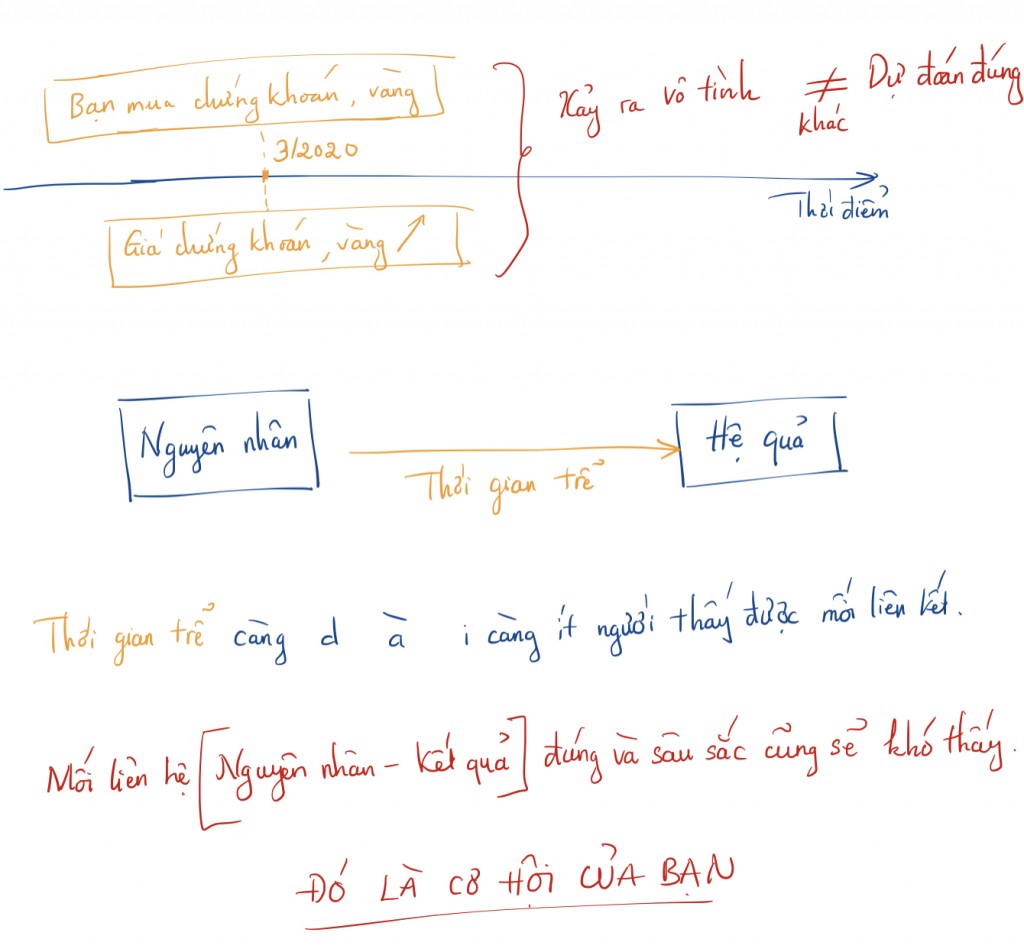 Bạn mua chứng khoán, vàng
3/2020
Giá chứng khoán, vàng ↗
Xảy ra vô tình ≠ Dự đoán đúng
khác
Thời điểm
Nguyên nhân
Thời gian trể
Hệ quả
Thời gian trể càng d à i càng ít người thấy được mối liên kết.
Mối liên hệ [Nguyên nhân - Kết quả] đúng và sâu sắc cũng sẽ khó thấy.
ĐÓ LÀ CƠ HỘI CỦA BẠN